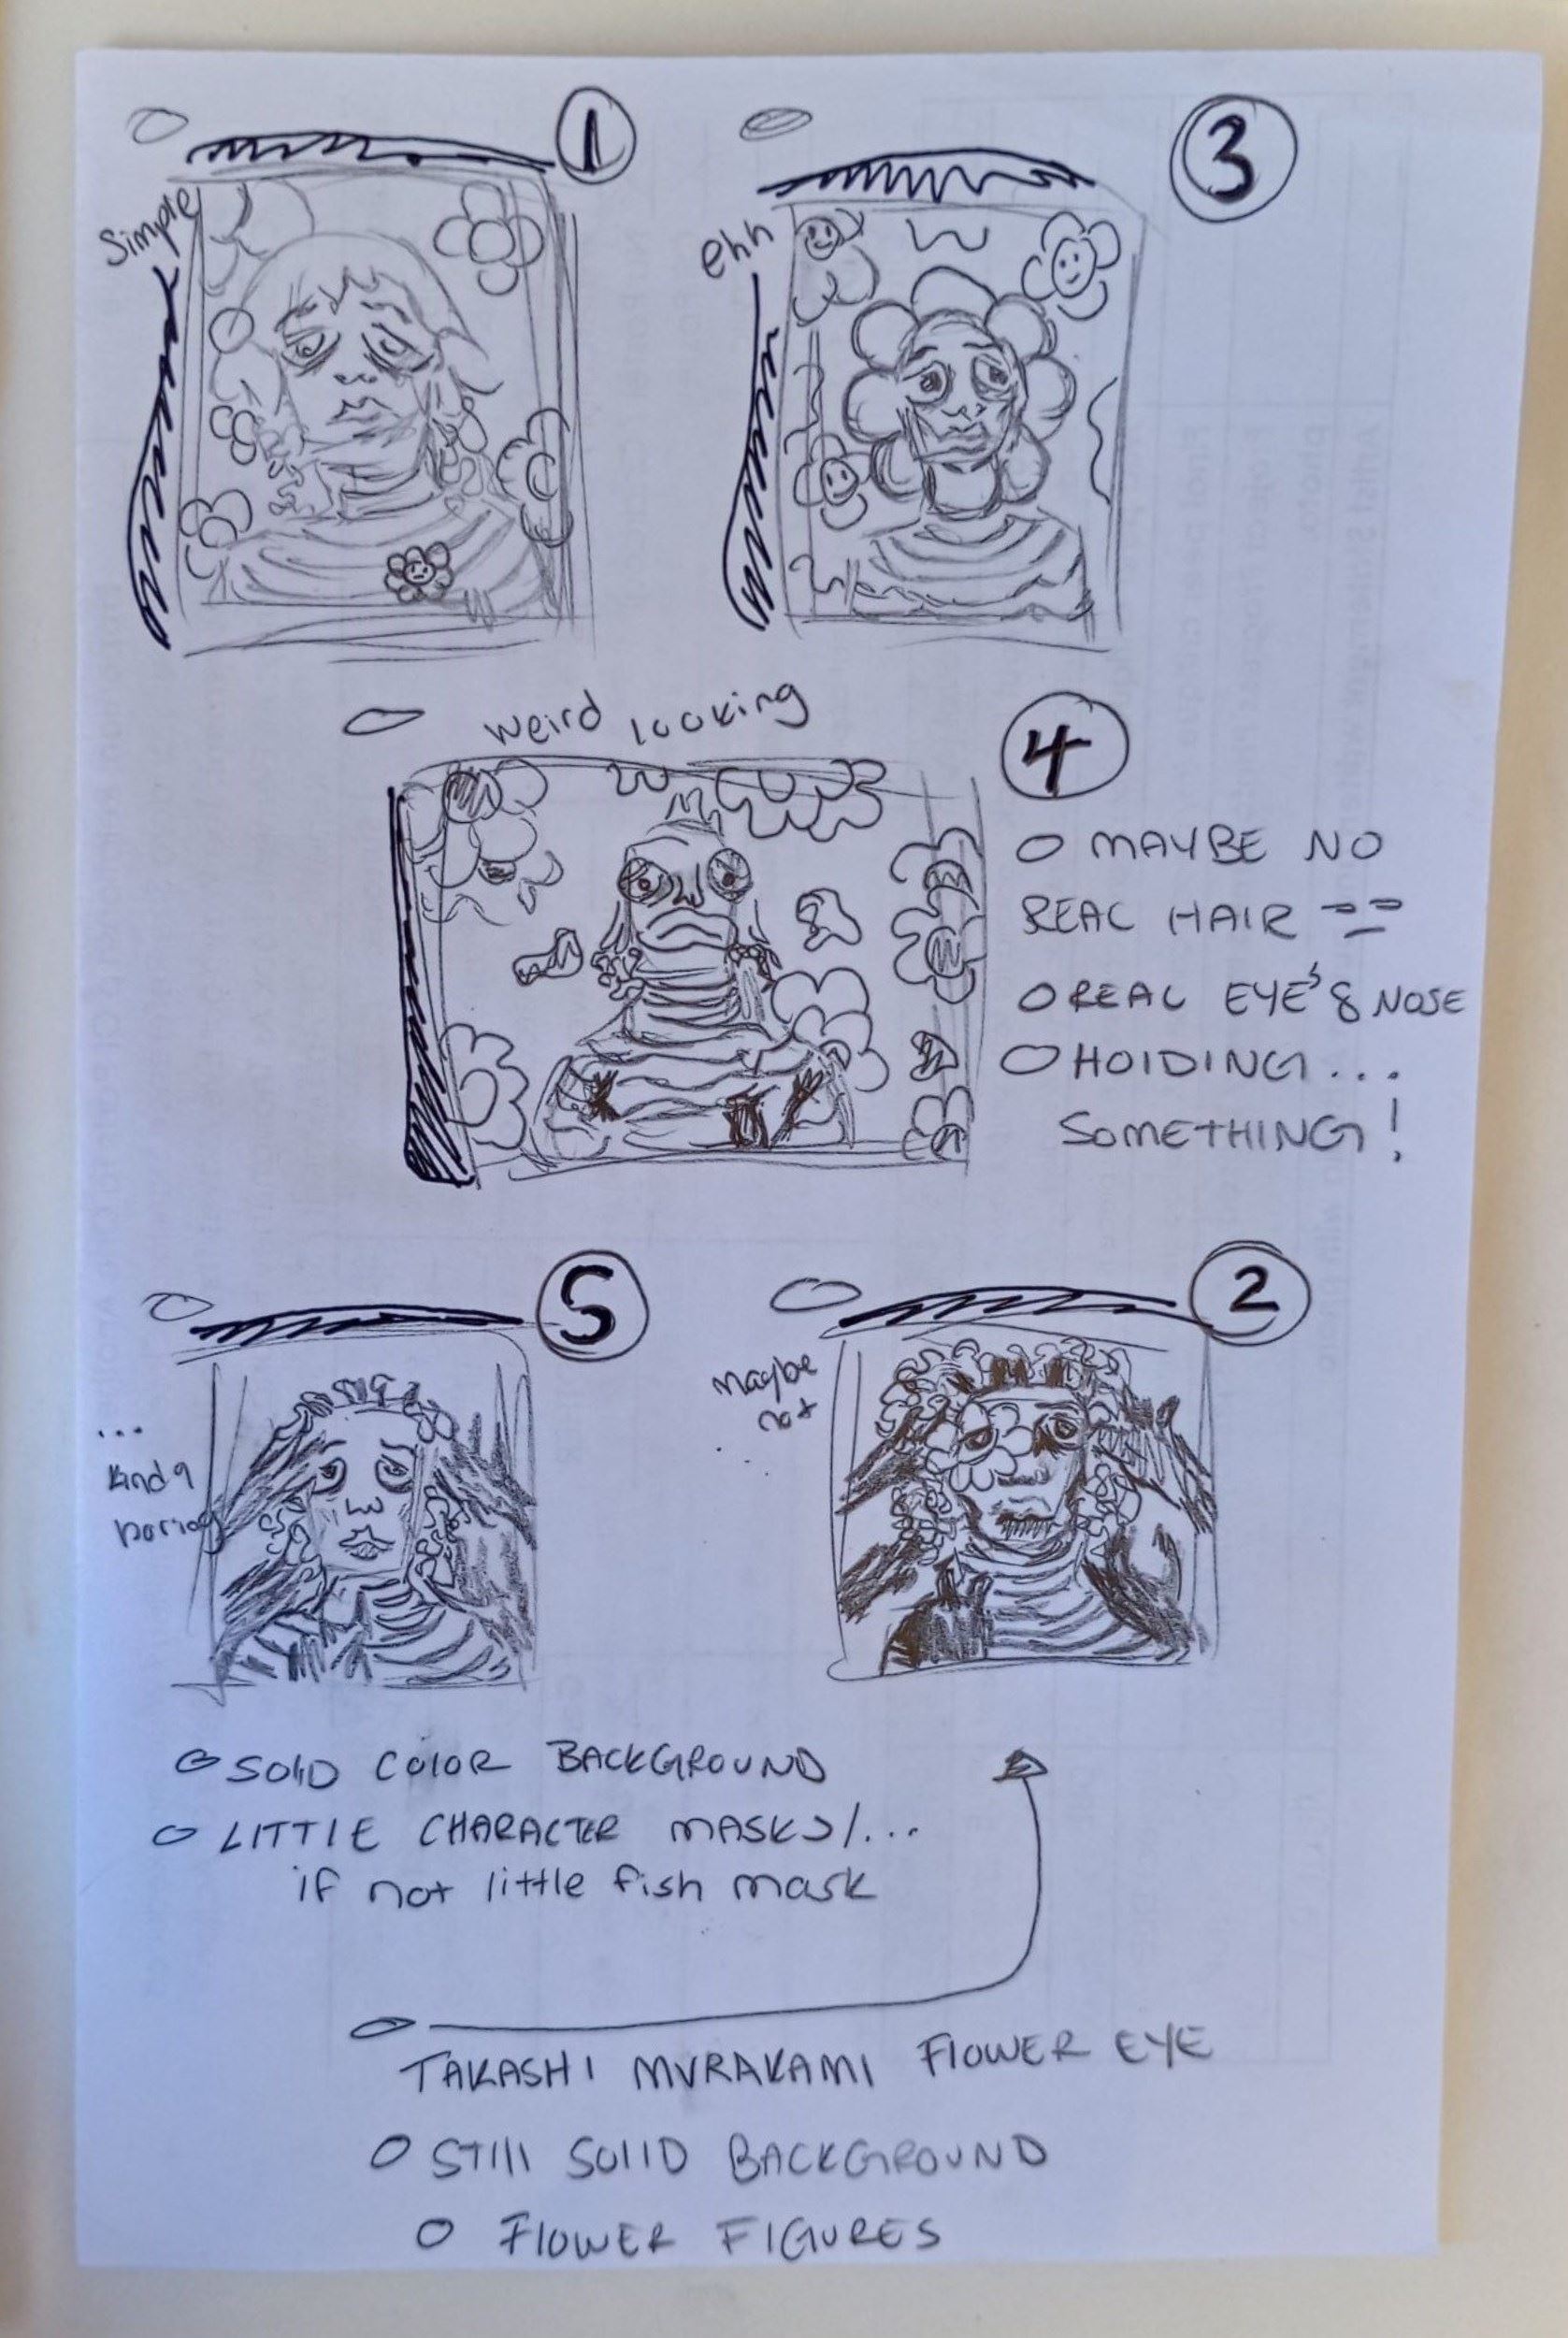 1
Simple
3
ehh
weird looking
4
O MAYBE NO
REAL HAIR
O REAL EYE'S & NOSE
O HOIDING...
SOMETHING!
5
...
kinda
boring
2
maybe
not
O SOLID COLOR BACKGROUND
O LITTlE CHARACTER MASKS/...
if not little fish mask
TAKASHI MURAKAMI FlOWER EYE
O STIll SOlID BACKGROUND
O FlOWER FIGURES